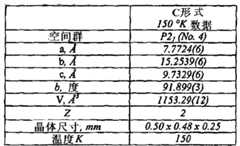 C形式
150 °K 数据
空间群 P2₁ (No. 4)
a, Å 7.7724(6)
b, Å 15.2539(6)
c, Å 9.7329(6)
b, 度 91.899(3)
V, Å³ 1153.29(12)
Z 2
晶体尺寸, mm 0.50 x 0.48 x 0.25
温度K 150